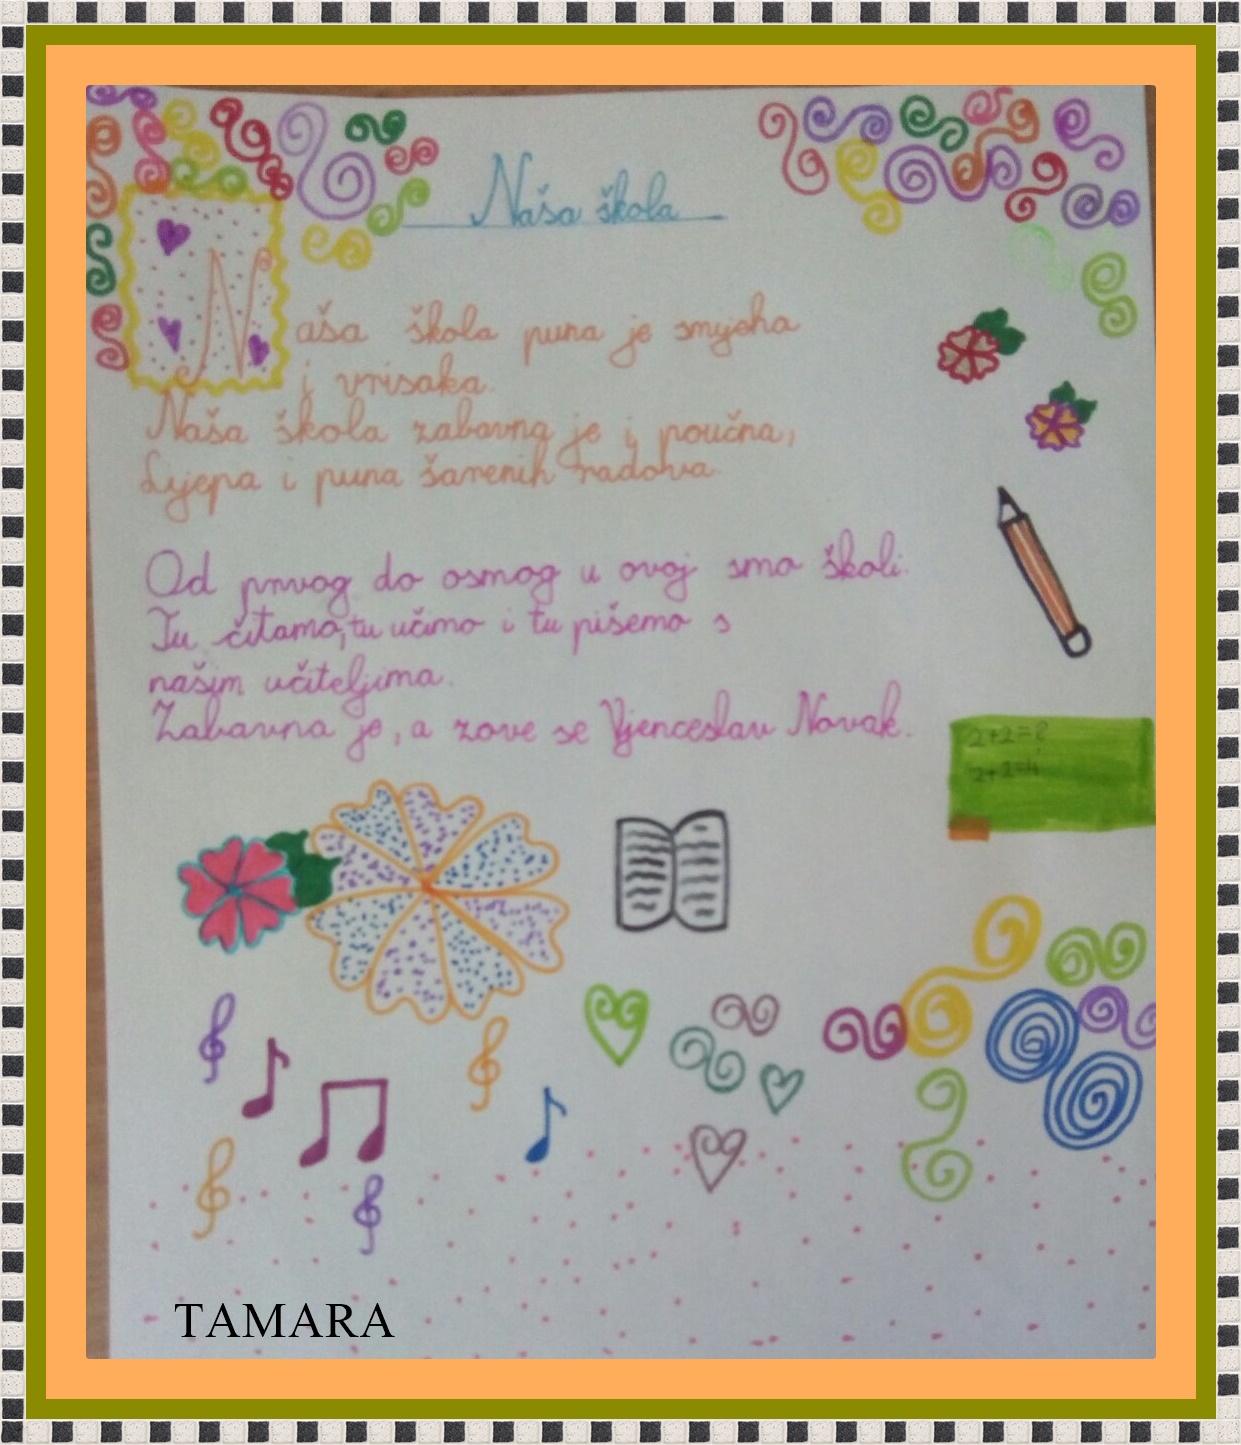 Naša škola
Naša škola puna je smjeha
i vriska.
Naša škola zabavna je i poučna,
Lijepa i puna šarenih radova.
Od prvog do osmog u ovoj smo školi.
Tu čitamo, tu učimo i tu pišemo s
našim učiteljima.
Zabavna je, a zove se Vjenceslav Novak.
2+2=?
2+2=4
TAMARA